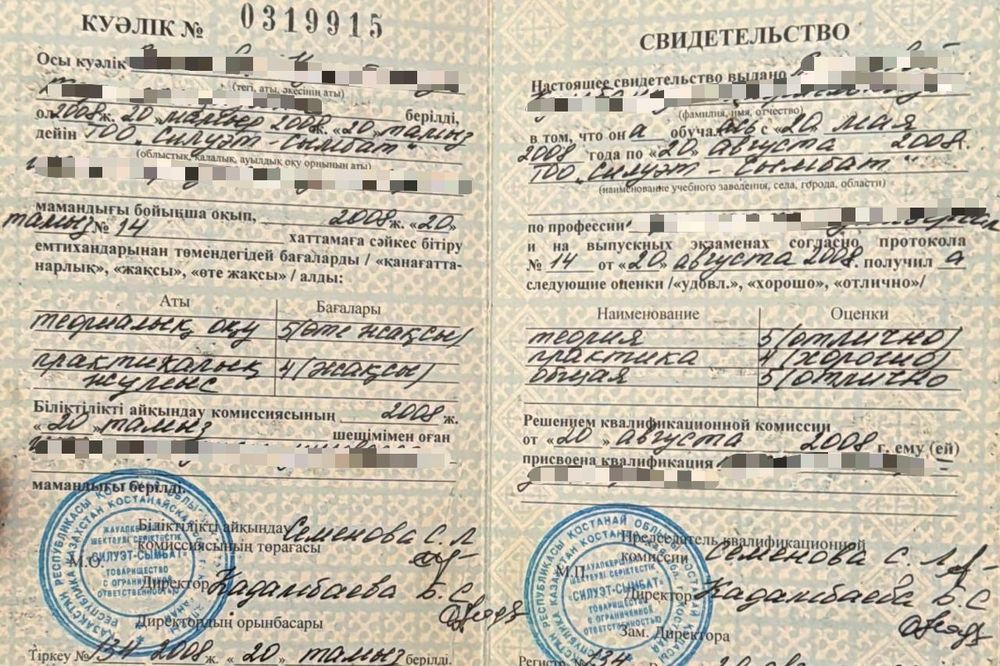 КУӘЛІК № 0319915
Осы куәлік
(тегі, аты, әкесінің аты)
берілді,
ол 2008 ж. «20» мамыр 2008 ж. «20» тамыз
дейін ТОО „Силуэт-Сымбат"
(облыстық, қалалық, ауылдық оқу орнының аты)
мамандығы бойынша оқып, 2008 ж. «20»
тамыз № 14 хаттамаға сәйкес бітіру
емтихандарынан төмендегідей бағаларды / «қанағатта-
нарлық», «жақсы», «өте жақсы» / алды:
Аты Бағалары
теориалық оқу 5 (өте жақсы)
практикалық 4 (жақсы)
жұмыс
Біліктілікті айқындау комиссиясының 2008 ж.
«20» тамыз шешімімен оған
мамандығы берілді.
Біліктілікті айқындау Семенова С. Л
комиссиясының төрағасы
М.О.
Директор Кадамбаева Б. С
Директордың орынбасары
Тіркеу № 134 2008 ж. «20» тамыз берілді.
СВИДЕТЕЛЬСТВО
Настоящее свидетельство выдано
(фамилия, имя, отчество)
в том, что она обучалась с «20» мая
2008 года по «20» августа 2008г.
ТОО „Силуэт-Сымбат"
(наименование учебного заведения, села, города, области)
по профессии
и на выпускных экзаменах согласно протокола
№ 14 от «20» августа 2008. получил а
следующие оценки /«удовл.», «хорошо», «отлично»/
Наименование Оценки
теория 5 (отлично)
практика 4 (хорошо)
общая 5 (отлично
Решением квалификационной комиссии
от «20» августа 2008 г. ему (ей)
присвоена квалификация
Председатель квалификационной
комиссии Семенова С. Л
М.П.
Директор Кадамбаева Б. С
Зам. Директора
Регистр. № 134
СИЛУЭТ-СЫМБАТ
ТОВАРИЩЕСТВО
С ОГРАНИЧЕННОЙ
ОТВЕТСТВЕННОСТЬЮ
СИЛУЭТ-СЫМБАТ
ТОВАРИЩЕСТВО
С ОГРАНИЧЕННОЙ
ОТВЕТСТВЕННОСТЬЮ